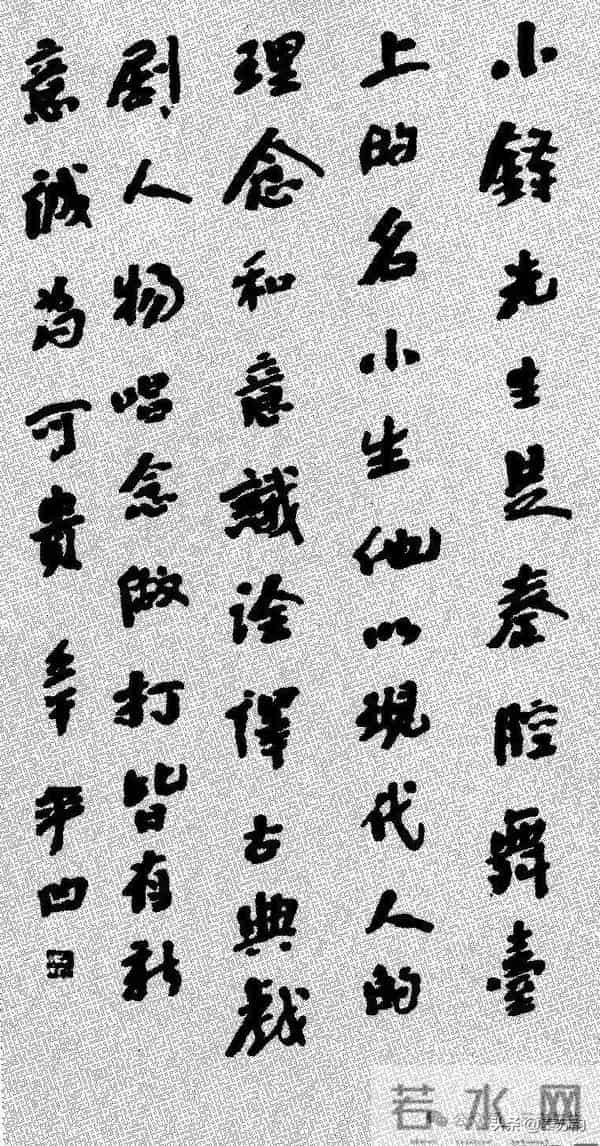 小鋒先生是秦腔舞臺
上的名小生他以現代人的
理念和意識詮釋古典戲
剧人物唱念做打皆有新
意誠為可貴 平凹
若水网